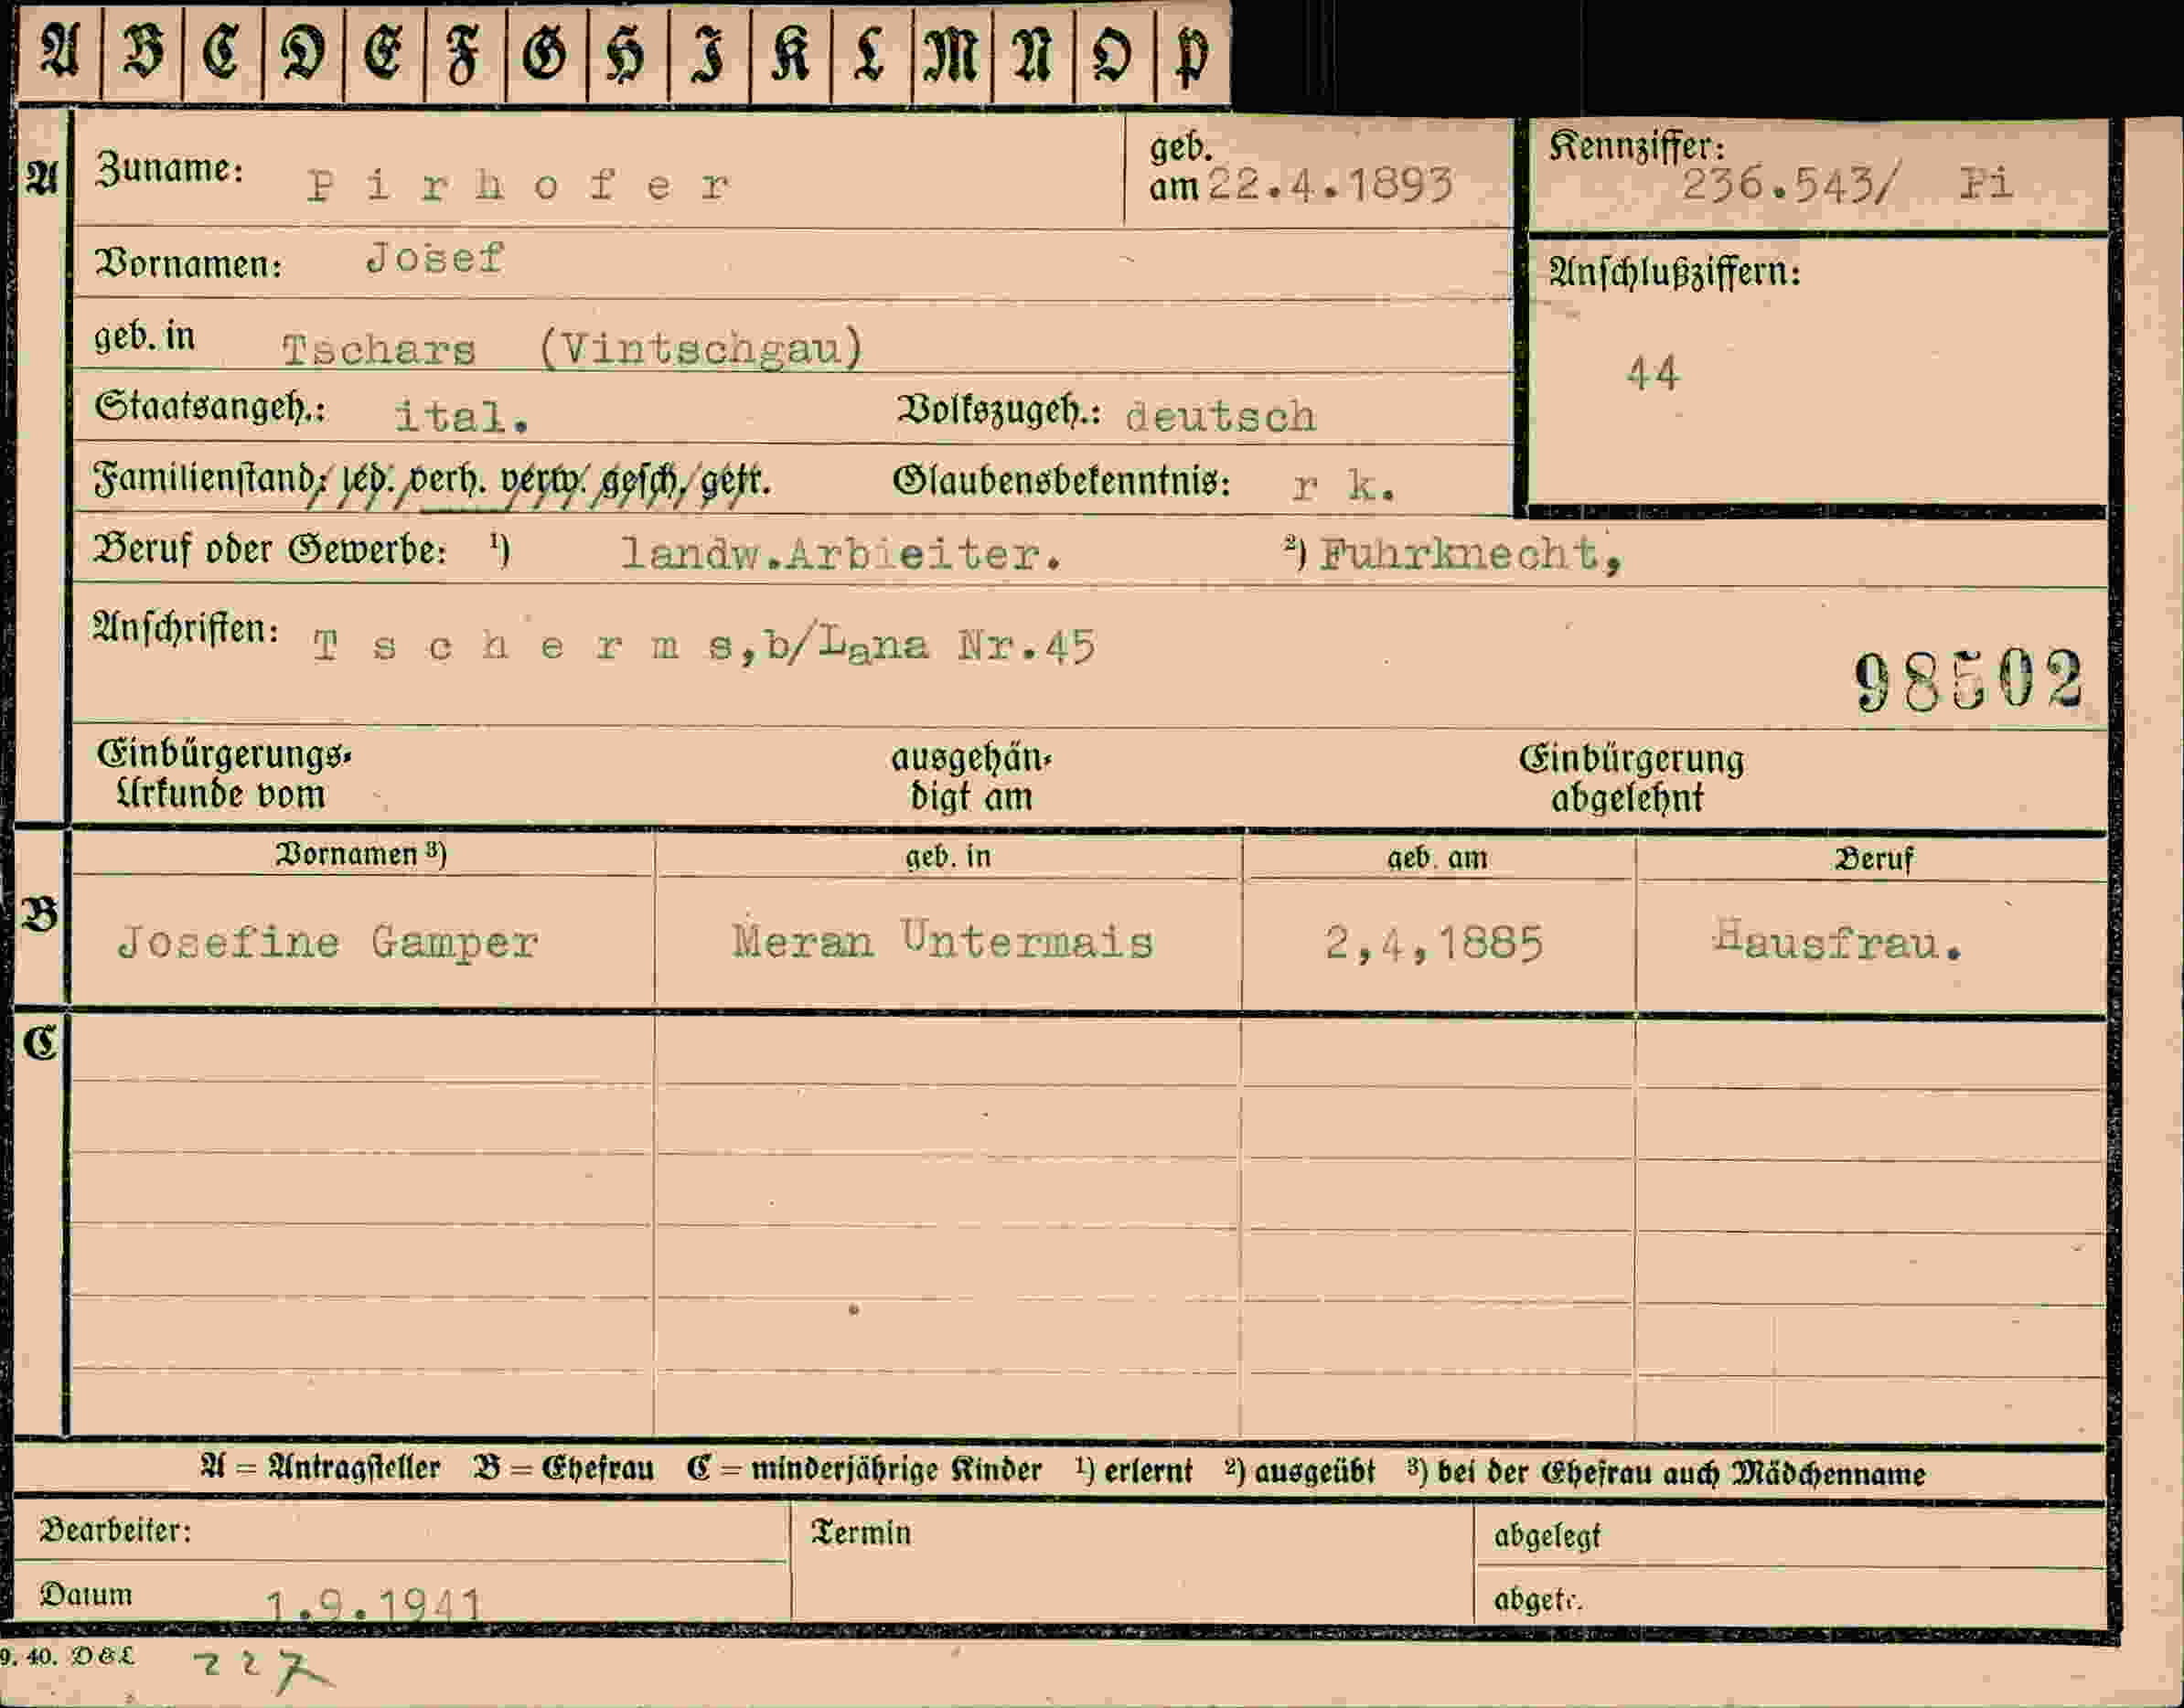 A B C D E F G H I K L M N O P
A Zuname: Pirhofer geb. am 22.4.1893 Kennziffer: 236.543/ Pi
Vornamen: Josef Anschlußziffern:
geb. in Tschars (Vintschgau) 44
Staatsangeh.: ital. Volkszugeh.: deutsch
Familienstand: led. verh. verw. gesch. getr. Glaubensbekenntnis: r k.
Beruf oder Gewerbe: ¹) landw.Arbieiter. ²) Fuhrknecht,
Anschriften: Tscherms,b/Lana Nr.45
98502
Einbürgerungs- ausgehän- Einbürgerung
Urkunde vom digt am abgelehnt
Vornamen ³) geb. in geb. am Beruf
B Josefine Gamper Meran Untermais 2,4,1885 Hausfrau.
C
A = Antragsteller B = Ehefrau C = minderjährige Kinder ¹) erlernt ²) ausgeübt ³) bei der Ehefrau auch Mädchenname
Bearbeiter: Termin abgelegt
Datum 1.9.1941 abgetr.
9. 40. D&L 227